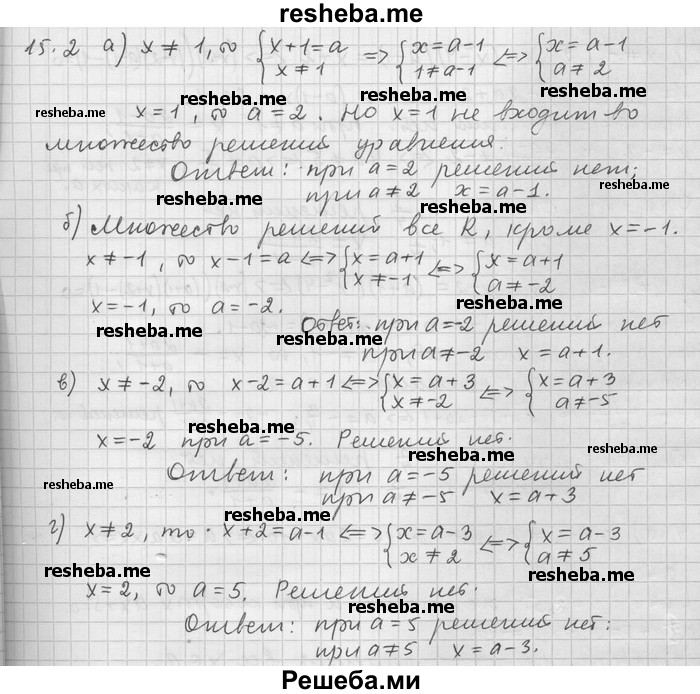 resheba.me
15.2 а) x ≠ 1, то { x+1=a x≠1 => { x=a-1 1≠a-1 <=> { x=a-1 a≠2
resheba.me resheba.me resheba.me
x=1, то a=2. Но x=1 не входит во
множество решений уравнения.
Ответ: при a=2 решений нет;
resheba.me
при a≠2 x=a-1.
resheba.me resheba.me
б) Множество решений все R, кроме x=-1.
x≠-1, то x-1=a <=> { x=a+1 x≠-1 <=> { x=a+1 a≠-2
resheba.me resheba.me
x=-1, то a=-2.
resheba.me resheba.me
Ответ: при a=-2 решений нет
при a≠-2 x=a+1.
resheba.me
в) x≠-2, то x-2=a+1 <=> { x=a+3 x≠-2 <=> { x=a+3 a≠-5
resheba.me
x=-2 при a=-5. Решений нет.
resheba.me resheba.me
Ответ: при a=-5 решений нет
resheba.me
при a≠-5 x=a+3
resheba.me
г) x≠2, то x+2=a-1 <=> { x=a-3 x≠2 <=> { x=a-3 a≠5
resheba.me resheba.me
x=2, то a=5. Решений нет.
resheba.me
Ответ: при a=5 решений нет:
resheba.me
при a≠5 x=a-3.
Решеба.ми